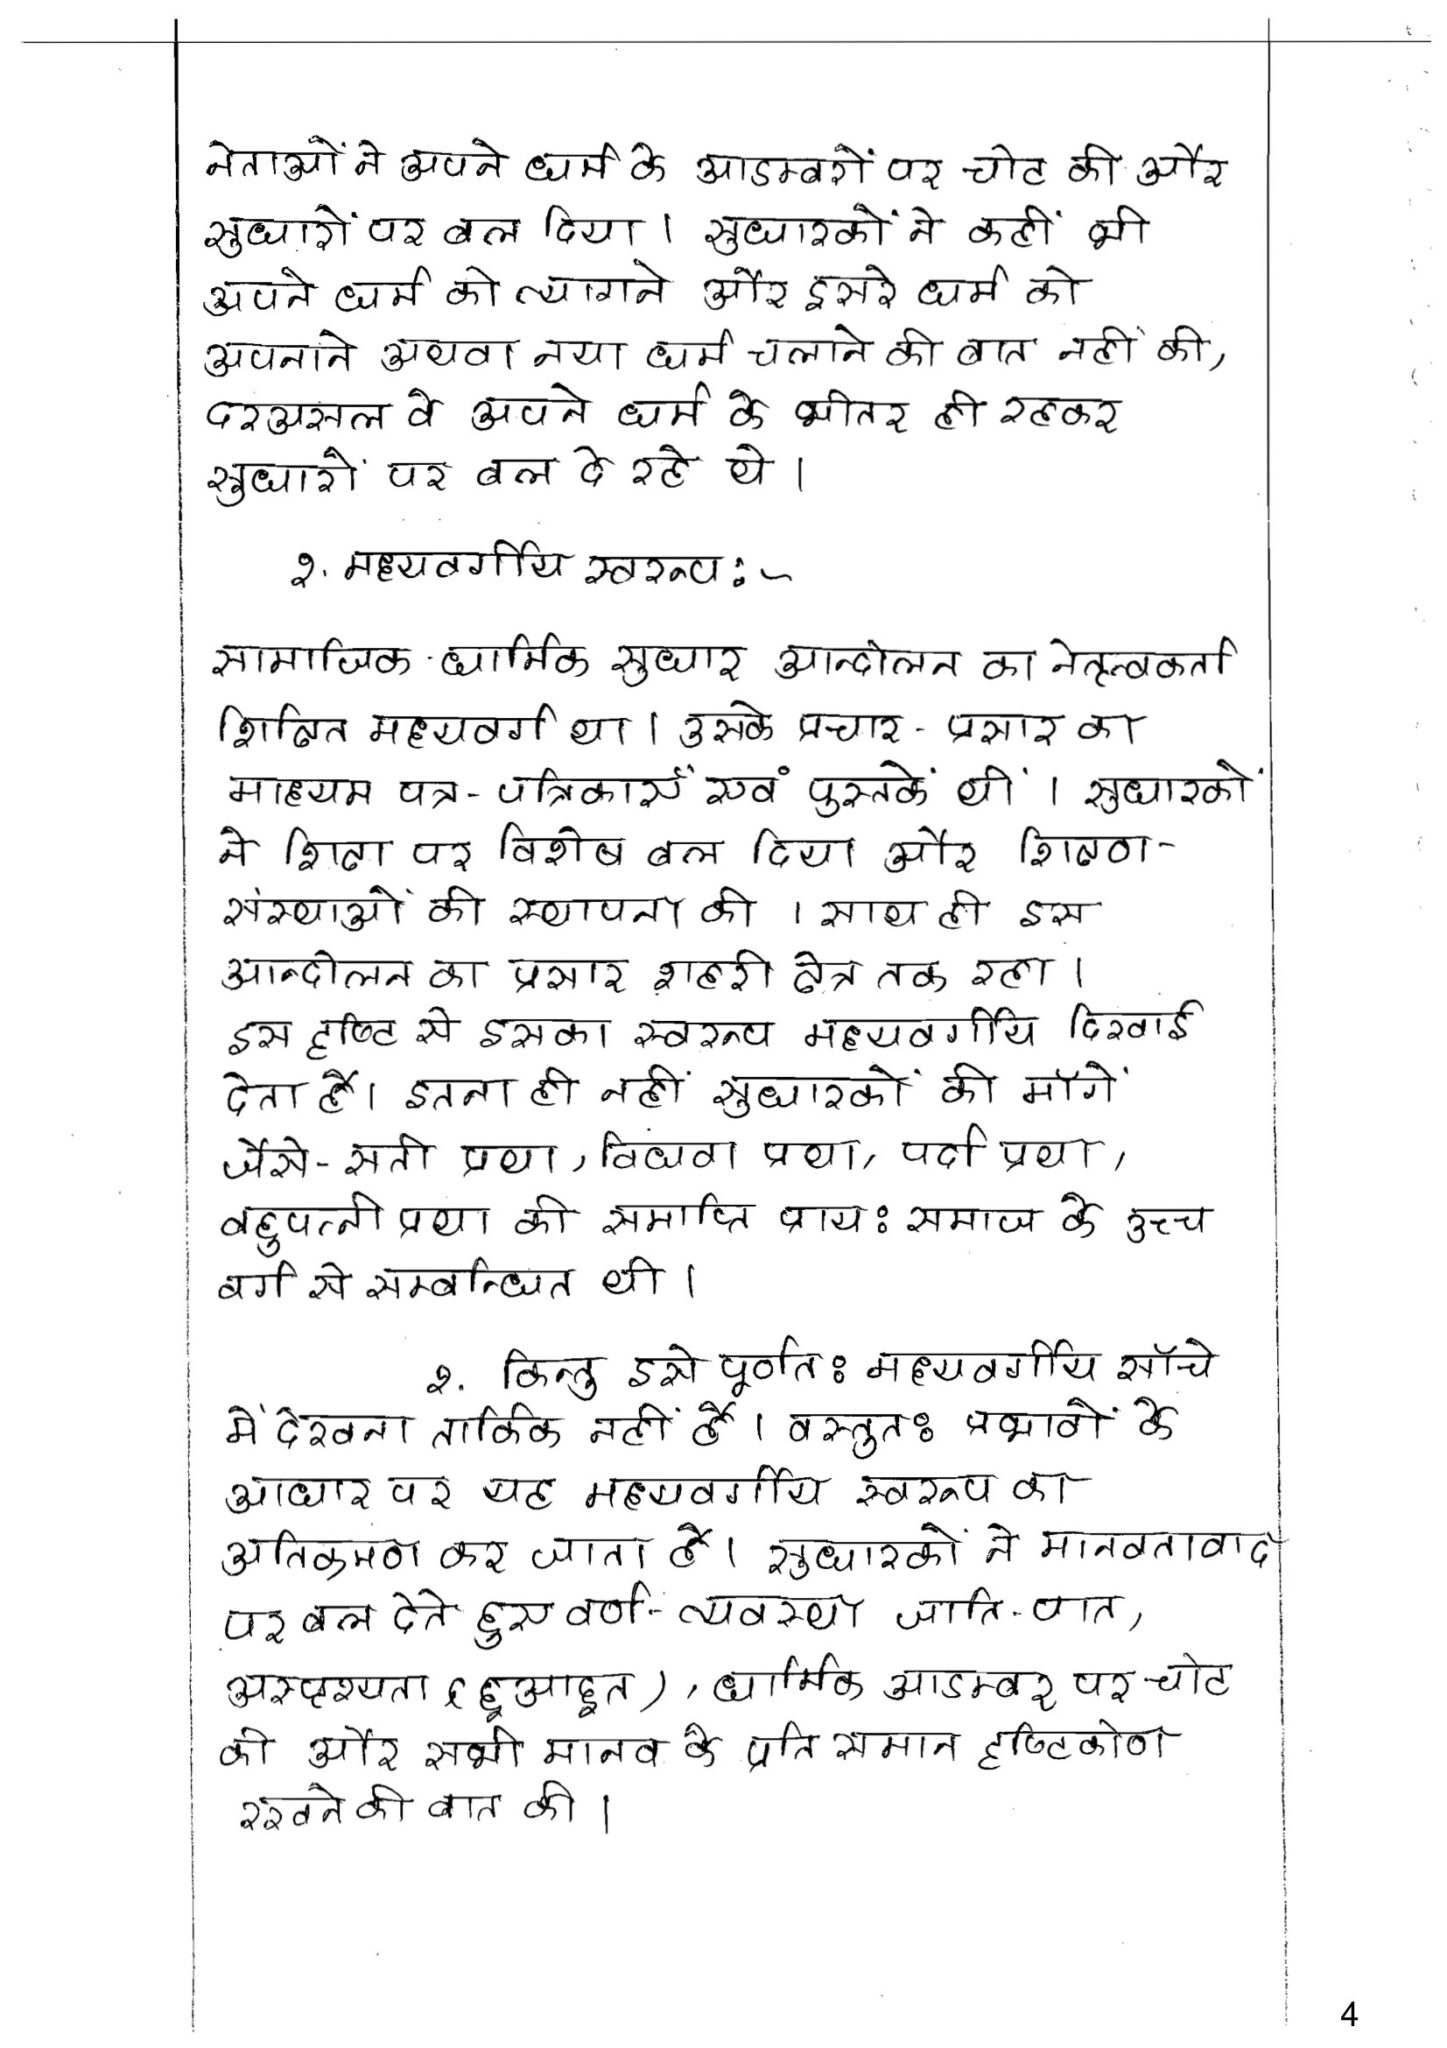 नेताओं ने अपने धर्म के आडम्बरों पर चोट की और
सुधारों पर बल दिया। सुधारकों ने कहीं भी
अपने धर्म को त्यागने और दूसरे धर्म को
अपनाने अथवा नया धर्म चलाने की बात नहीं की,
दरअसल वे अपने धर्म के भीतर ही रहकर
सुधारों पर बल दे रहे थे।
२. मध्यवर्गीय स्वरूप :-
सामाजिक-धार्मिक सुधार आन्दोलन का नेतृत्वकर्ता
शिक्षित मध्यवर्ग था। उसके प्रचार-प्रसार का
माध्यम पत्र-पत्रिकाएँ एवं पुस्तकें थीं। सुधारकों
ने शिक्षा पर विशेष बल दिया और शिक्षण-
संस्थाओं की स्थापना की। साथ ही इस
आन्दोलन का प्रसार शहरी क्षेत्र तक रहा।
इस दृष्टि से इसका स्वरूप मध्यवर्गीय दिखाई
देता है। इतना ही नहीं सुधारकों की माँगें
जैसे- सती प्रथा, विधवा प्रथा, पर्दा प्रथा,
बहुपत्नी प्रथा की समाप्ति प्रायः समाज के उच्च
वर्ग से सम्बन्धित थी।
२. किन्तु इसे पूर्णतः मध्यवर्गीय साँचे
में देखना तार्किक नहीं है। वस्तुतः प्रभावों के
आधार पर यह मध्यवर्गीय स्वरूप का
अतिक्रमण कर जाता है। सुधारकों ने मानवतावाद
पर बल देते हुए वर्ण-व्यवस्था जाति-पात,
अस्पृश्यता (छुआछूत), धार्मिक आडम्बर पर चोट
की और सभी मानव के प्रति समान दृष्टिकोण
रखने की बात की।
4